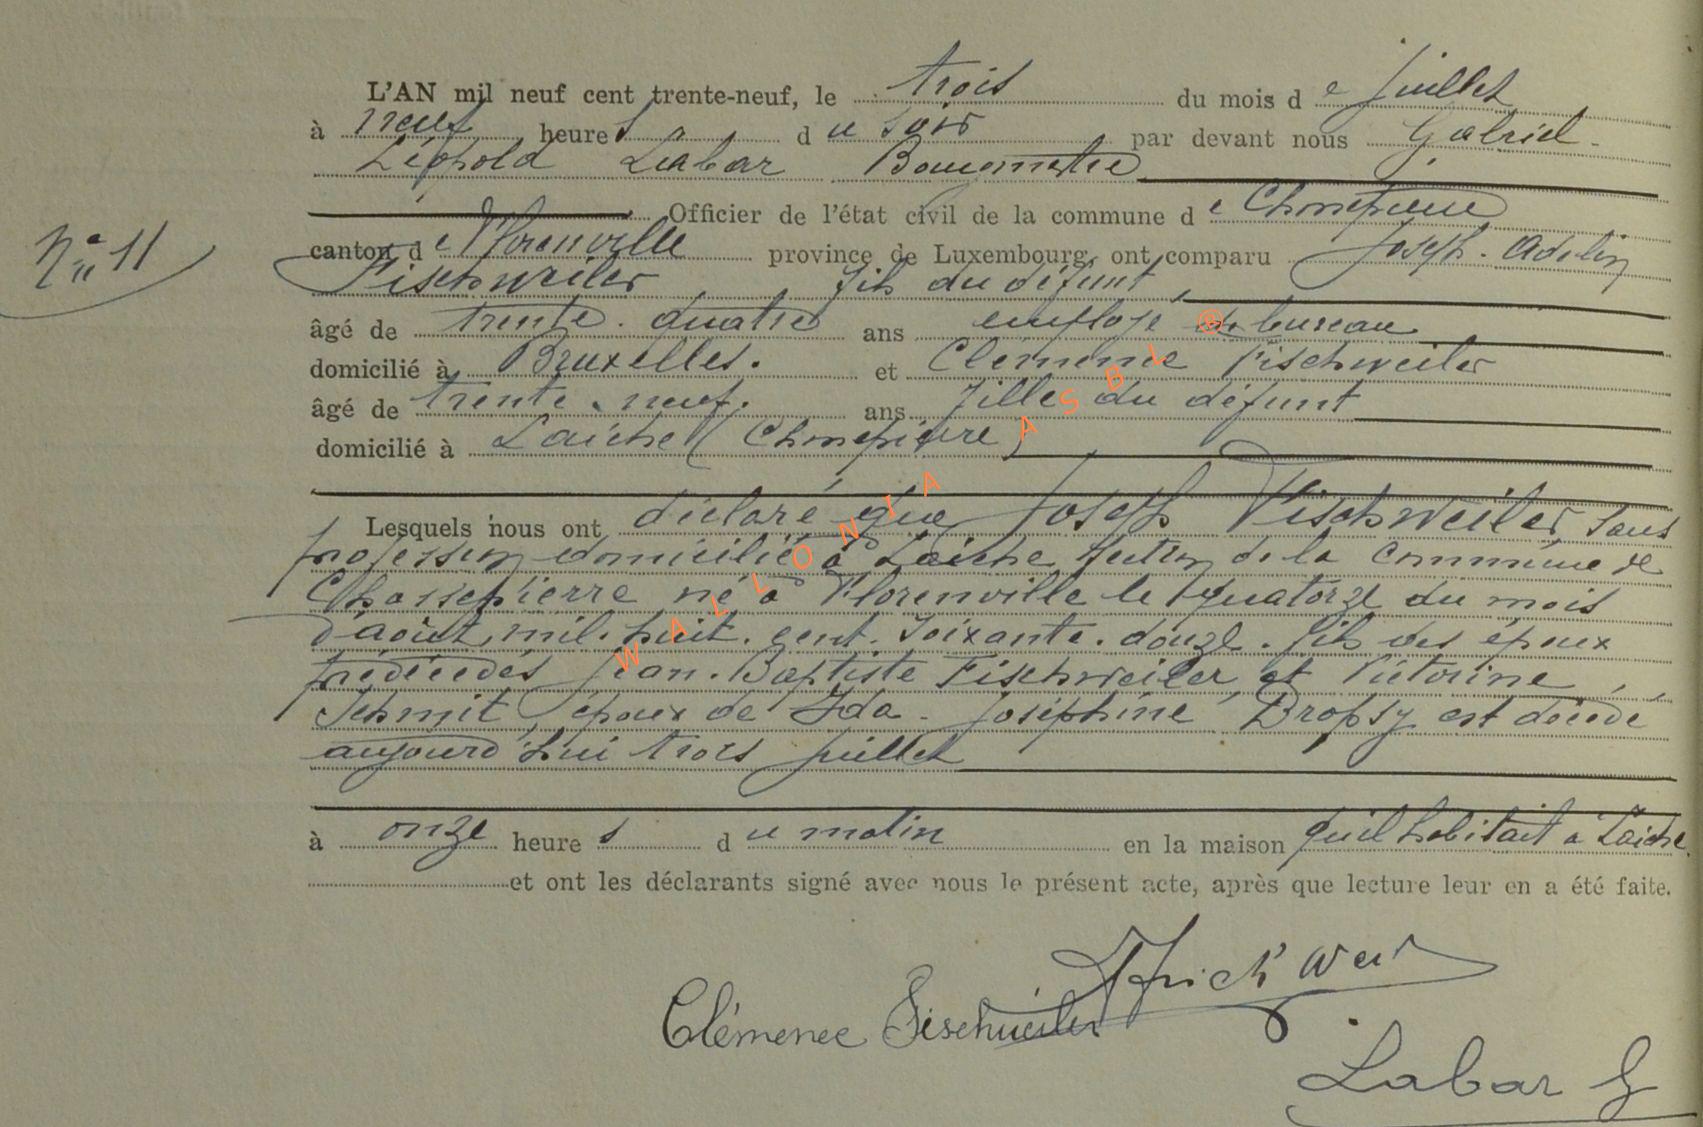 L'AN mil neuf cent trente-neuf, le trois du mois de Juillet
à neuf heures du soir par devant nous Gabriel
Léopold Labar Bourgmestre
Officier de l'état civil de la commune de Chassepierre
N° 11
canton de Florenville province de Luxembourg, ont comparu Joseph. Adelin
Fischweiler, fils du défunt,
âgé de trente. quatre ans employé de bureau
domicilié à Bruxelles. et Clémence Fischweiler
âgé de trente. neuf. ans fille du défunt
domicilié à Laiche (Chassepierre)
Lesquels nous ont déclaré que Joseph Fischweiler, sans
profession domicilié à Laiche section de la commune de
Chassepierre né à Florenville le quatorze du mois
d'août, mil. huit. cent. soixante. douze. fils des époux
prédécédés Jean. Baptiste Fischweiler et Victorine
Schmit, époux de Ida. Joséphine Dropsy est décédé
aujourd'hui trois juillet
à onze heures du matin en la maison qu'il habitait à Laiche.
et ont les déclarants signé avec nous le présent acte, après que lecture leur en a été faite.
Clémence Fischweiler
Labar G
WALLONIA ASBL ®